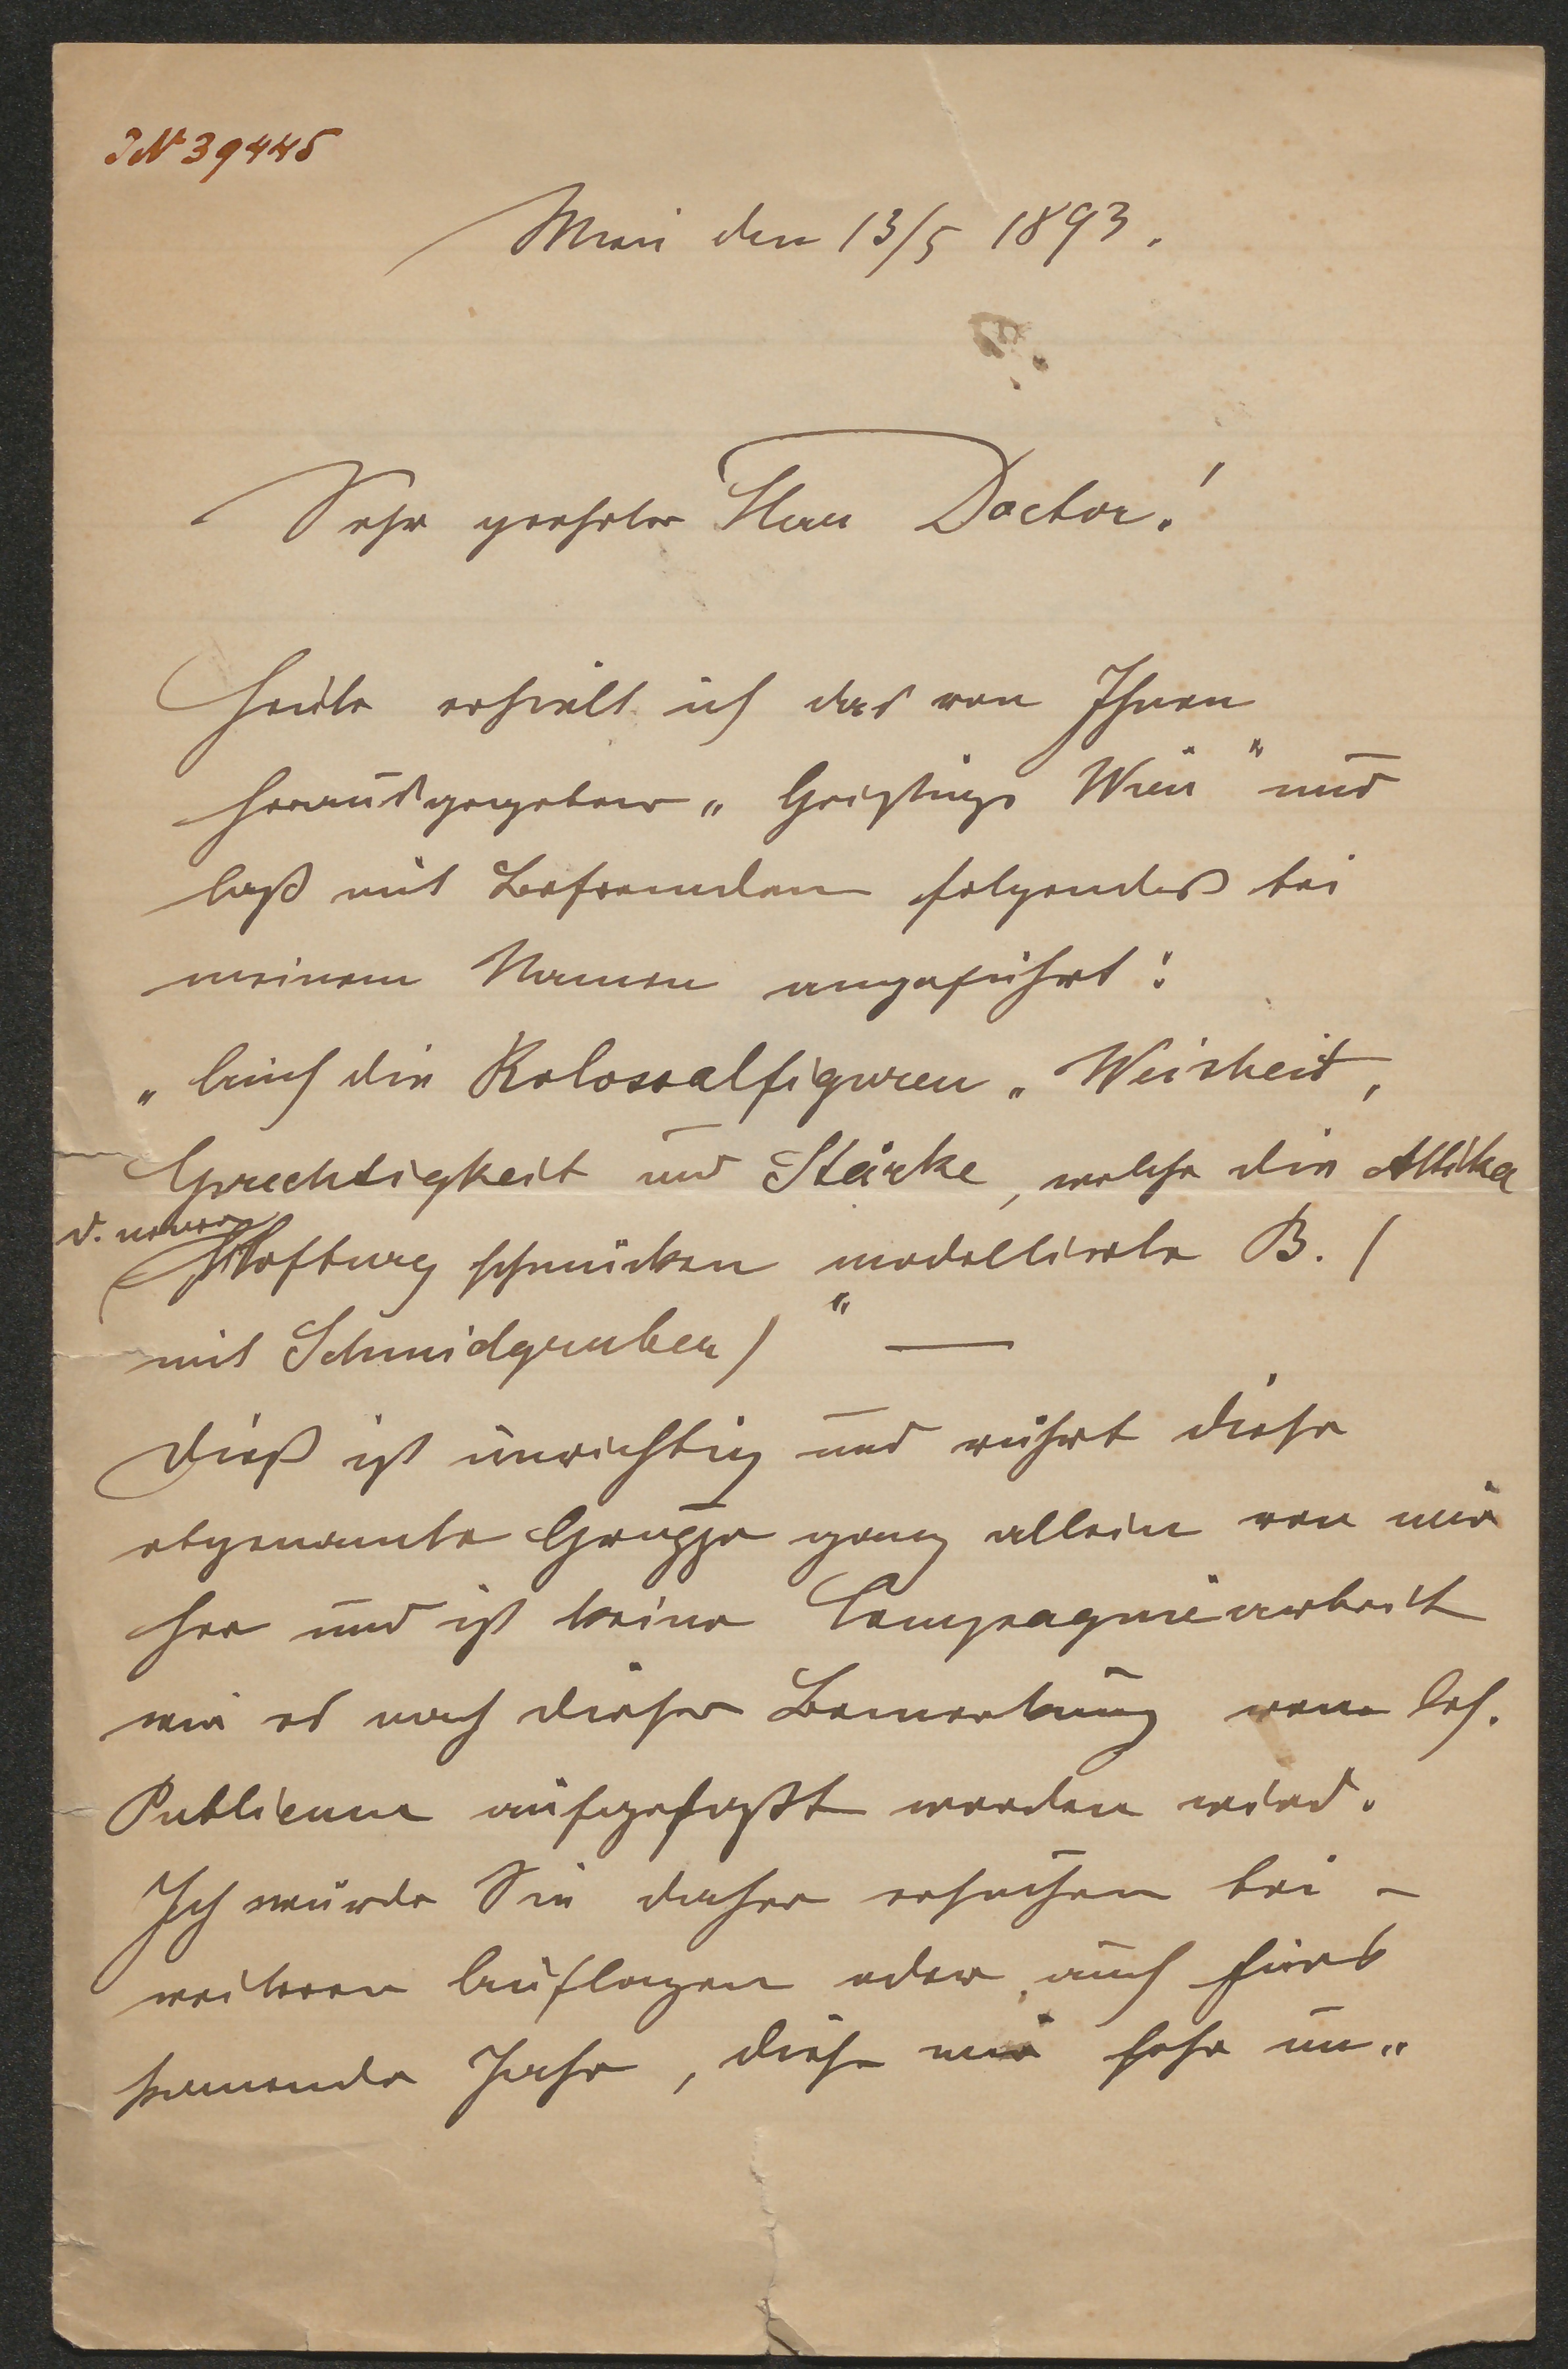 IN 39445
Wien den 13/5 1893.
Sehr geehrter Herr Doctor!
Heute erhielt ich das von Ihnen
herausgegebene „Geistige Wien" und
laß mit Befremden folgendeß bei
meinem Namen angeführt:
„Auch die Kolossalfiguren „Weisheit,
Gerechtigkeit und Stärke, welche die Attika
d. neuen
Hofburg schmücken modellirte B. (
mit Schmidgruber)" —
Dieß ist unrichtig und rührt diese
obgenannte Gruppe ganz allein von mir
her und ist keine Compagniearbeit
wie es nach dieser Bemerkung vom
Publicum aufgefaßt werden wird.
Ich würde Sie daher ersuchen bei -
weiteren Auflagen oder auch fürs
kommende Jahr, diese mir sehr un„